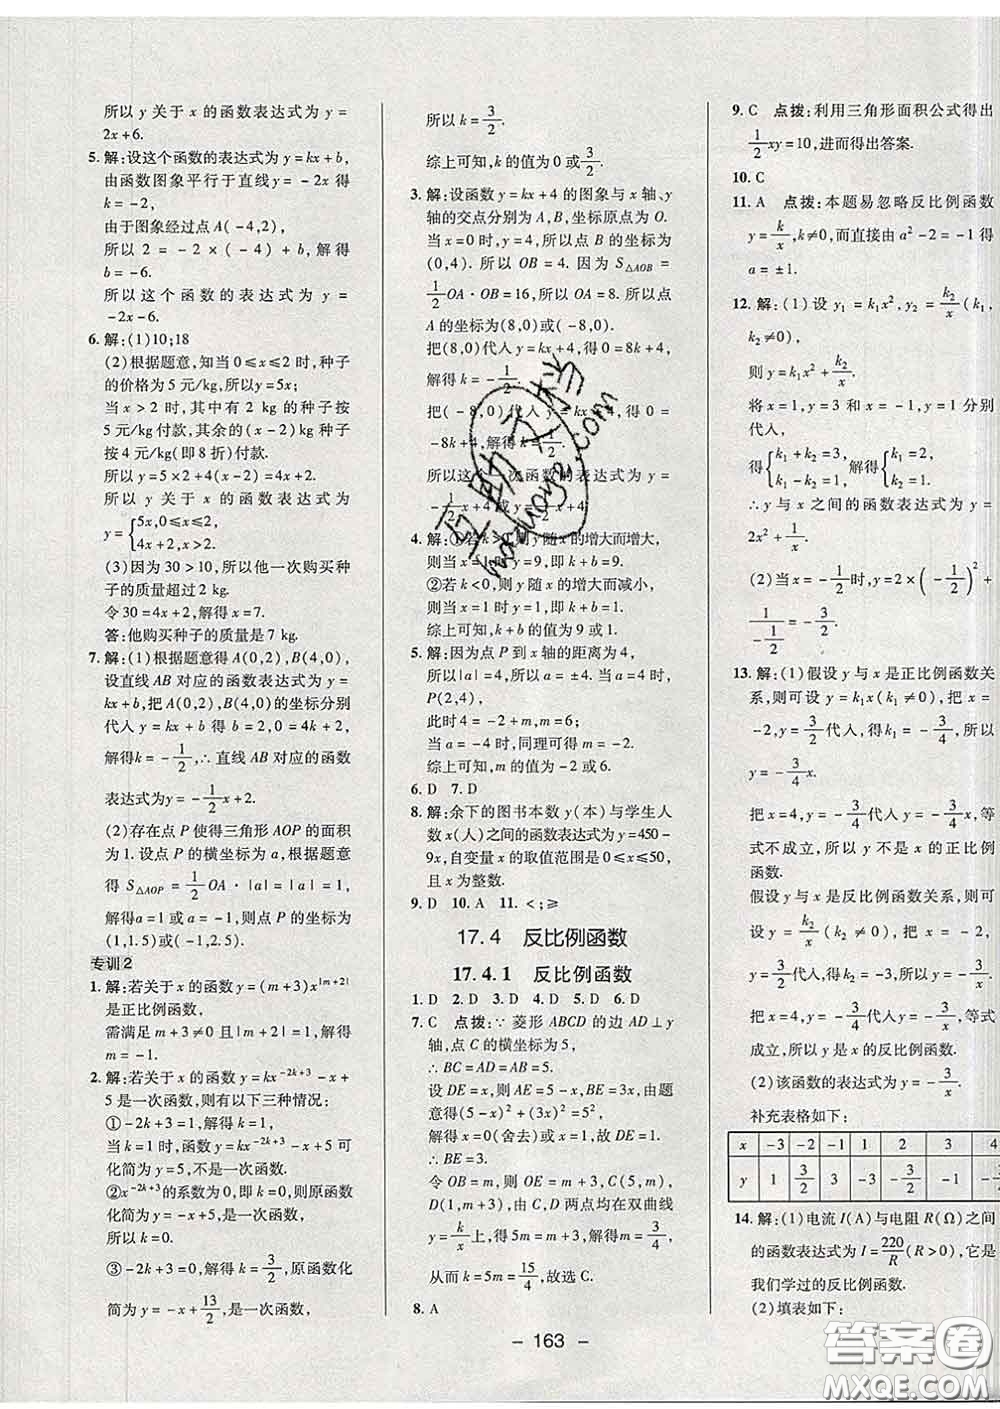 所以 y 关于 x 的函数表达式为 y=
2x+6.
5. 解:设这个函数的表达式为 y=kx+b,
由函数图象平行于直线 y=-2x 得
k=-2,
由于图象经过点 A(-4,2),
所以 2=-2×(-4)+b,解得
b=-6.
所以这个函数的表达式为 y=
-2x-6.
6. 解:(1)10;18
(2)根据题意,知当 0≤x≤2 时,种子
的价格为 5 元/kg,所以 y=5x;
当 x>2 时,其中有 2 kg 的种子按
5 元/kg 付款,其余的(x-2)kg 种子
按 4 元/kg(即 8 折)付款.
所以 y=5×2+4(x-2)=4x+2.
所以 y 关于 x 的函数表达式为
y={5x,0≤x≤2,
4x+2,x>2.
(3)因为 30>10,所以他一次购买种
子的质量超过 2 kg.
令 30=4x+2,解得 x=7.
答:他购买种子的质量是 7 kg.
7. 解:(1)根据题意得 A(0,2),B(4,0),
设直线 AB 对应的函数表达式为 y=
kx+b,把 A(0,2),B(4,0)的坐标分别
代入 y=kx+b 得 b=2,0=4k+2,
解得k=-1/2,∴直线 AB 对应的函数
表达式为y=-1/2x+2.
(2)存在点 P 使得三角形 AOP 的面积
为 1.设点 P 的横坐标为 a,根据题意
得 S△AOP=1/2OA·|a|=|a|=1,
解得a=1 或 a=-1,则点 P 的坐标为
(1,1.5)或(-1,2.5).
专训2
1. 解:若关于 x 的函数 y=(m+3)x^|m+2|
是正比例函数,
需满足 m+3≠0 且|m+2|=1,解得
m=-1.
2. 解:若关于 x 的函数 y=kx^(-2k+3)-x+
5 是一次函数,则有以下三种情况:
①-2k+3=1,解得 k=1;
当 k=1 时,函数 y=kx^(-2k+3)-x+5 可
化简为 y=5,不是一次函数.
②x^(-2k+3)的系数为 0,即 k=0,则原函数
化简为 y=-x+5,是一次函数,
所以 k=0.
③-2k+3=0,解得 k=3/2,原函数化
简为 y=-x+13/2,是一次函数,
所以 k=3/2.
综上可知,k 的值为 0 或3/2.
3. 解:设函数 y=kx+4 的图象与 x 轴、y
轴的交点分别为 A,B,坐标原点为 O.
当 x=0 时,y=4,所以点 B 的坐标为
(0,4).所以 OB=4.因为 S△AOB=
1/2OA·OB=16,所以 OA=8.所以点
A 的坐标为(8,0)或(-8,0).
把(8,0)代入 y=kx+4,得 0=8k+4,
解得 k=-1/2.
把(-8,0)代入 y=kx+4,得 0=
-8k+4,解得k=1/2.
所以这个一次函数的表达式为 y=
-1/2x+4 或 y=1/2x+4.
4. 解:①若 k>0,则 y 随 x 的增大而增大,
则当 x=1 时,y=9,即 k+b=9.
②若 k<0,则 y 随 x 的增大而减小,
则当 x=1 时,y=1,即 k+b=1.
综上可知,k+b 的值为 9 或 1.
5. 解:因为点 P 到 x 轴的距离为 4,
所以|a|=4,所以 a=±4.当 a=4 时,
P(2,4),
此时 4=-2+m,m=6.
当 a=-4 时,同理可得 m=-2.
综上可知,m 的值为-2 或 6.
6. D 7. D
8. 解:余下的图书本数 y(本)与学生人
数 x(人)之间的函数表达式为 y=450-
9x,自变量 x 的取值范围是 0≤x≤50,
且 x 为整数.
9. D 10. A 11. <;≥
17.4 反比例函数
17.4.1 反比例函数
1. D 2. D 3. D 4. D 5. D 6. D
7. C 点拨:∵菱形 ABCD 的边 AD⊥y
轴,点 C 的横坐标为 5,
∴BC=AD=AB=5.
设 DE=x,则 AE=5-x,BE=3x,由题
意得(5-x)²+(3x)²=5²,
解得x=0(舍去)或 x=1,故 DE=1.
∴BE=3.
令 OB=m,则 OE=m+3,C(5,m),
D(1,m+3),由 C,D 两点均在双曲线
y=k/x上,得5m=m+3,所以m=3/4,
从而 k=5m=15/4,故选 C.
8. A
9. C 点拨:利用三角形面积公式得出
1/2xy=10,进而得出答案.
10. C
11. A 点拨:本题易忽略反比例函数
y=k/x,k≠0,而直接由 a²-2=-1得
a=±1.
12. 解:(1)设 y₁=k₁x²,y₂=k₂/x(k₁,
k₂≠0),
则 y=k₁x²+k₂/x.
将 x=1,y=3 和 x=-1,y=1 分别
代入,
得{k₁+k₂=3,k₁-k₂=1,解得{k₁=2,k₂=1.
∴y 与 x 之间的函数表达式为 y=
2x²+1/x.
(2)当 x=-1/2时,y=2×(-1/2)²+
1/(-1/2)=-3/2.
13. 解:(1)假设 y 与 x 是正比例函数关
系,则可设 y=k₁x(k₁≠0),把 x=
-2,y=3/2代入,得k₁=-3/4,所以
y=-3/4x.
把 x=4,y=-3/4代入 y=-3/4x,等
式不成立,所以 y 不是 x 的正比例
函数.
假设 y 与 x 是反比例函数关系,则可
设 y=k₂/x(k₂≠0),把 x=-2,y=3/2
代入,得 k₂=-3,所以 y=-3/x.
把 x=4,y=-3/4代入 y=-3/x,等式
成立,所以 y是 x 的反比例函数.
(2)该函数的表达式为 y=-3/x.
补充表格如下:
x -3 -2 -1 1 2 3 4
y 1 3/2 3 -3 -3/2 -1
14. 解:(1)电流 I(A)与电阻 R(Ω)之间
的函数表达式为 I=220/R(R>0),它是
我们学过的反比例函数.
(2)填表如下:
- 163 -
互助文档
huzhuwendang.com
答案圈
MXQE.COM